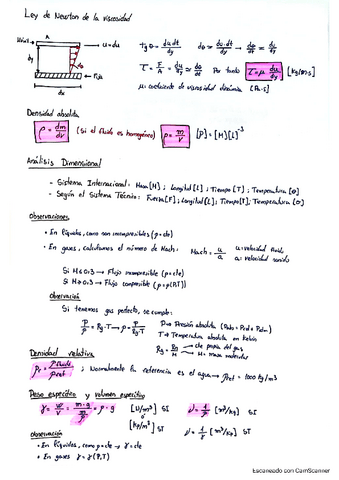 Ley de Newton de la viscosidad
A
u = du
dy
Fija
dx
tg dθ = du·dt/dy dθ = du·dt/dy → dθ/dt = du/dy
τ = F/A = du/dy = dθ/dt Por tanto τ = μ du/dy
μ: coeficiente de viscosidad dinámica [Pa·s]
Densidad absoluta
ρ = dm/dV (Si el fluido es homogéneo) ρ = m/V [ρ] = [M][L]⁻³
Análisis Dimensional
- Sistema Internacional: Masa [M]; Longitud [L]; Tiempo [T]; Temperatura [θ]
- Según el Sistema Técnico: Fuerza [F]; Longitud [L]; Tiempo [T]; Temperatura [θ]
Observaciones
• En líquidos, como son incompresibles (ρ = cte)
• En gases, calculamos el número de Mach: Mach = u/a u: velocidad fluido
a: velocidad sonido
Si M ≤ 0.3 → Flujo incompresible (ρ = cte)
Si M > 0.3 → Flujo compresible (ρ = ρ(P,T))
Observación
Si tenemos gas perfecto, se cumple:
P/ρ = Rg·T → ρ = P/Rg·T
P → Presión absoluta (Pabs = Prel + Patm)
T → Temperatura absoluta en Kelvin
Rg = Ro/M → cte propia del gas
M = Masa molecular
Densidad relativa
ρr = ρfluido/ρref ; Normalmente la referencia es el agua → ρref = 1000 kg/m3
Peso específico y volumen específico
γ = φ/V = m/V·g = ρ·g [N/m³] SI ν = 1/ρ [m³/kg] SI
o
[kp/m³] ST ν = 1/γ [m³/kp] ST
Observación
• En líquidos, como ρ = cte → γ = cte
• En gases γ = γ(P,T)
Escaneado con CamScanner